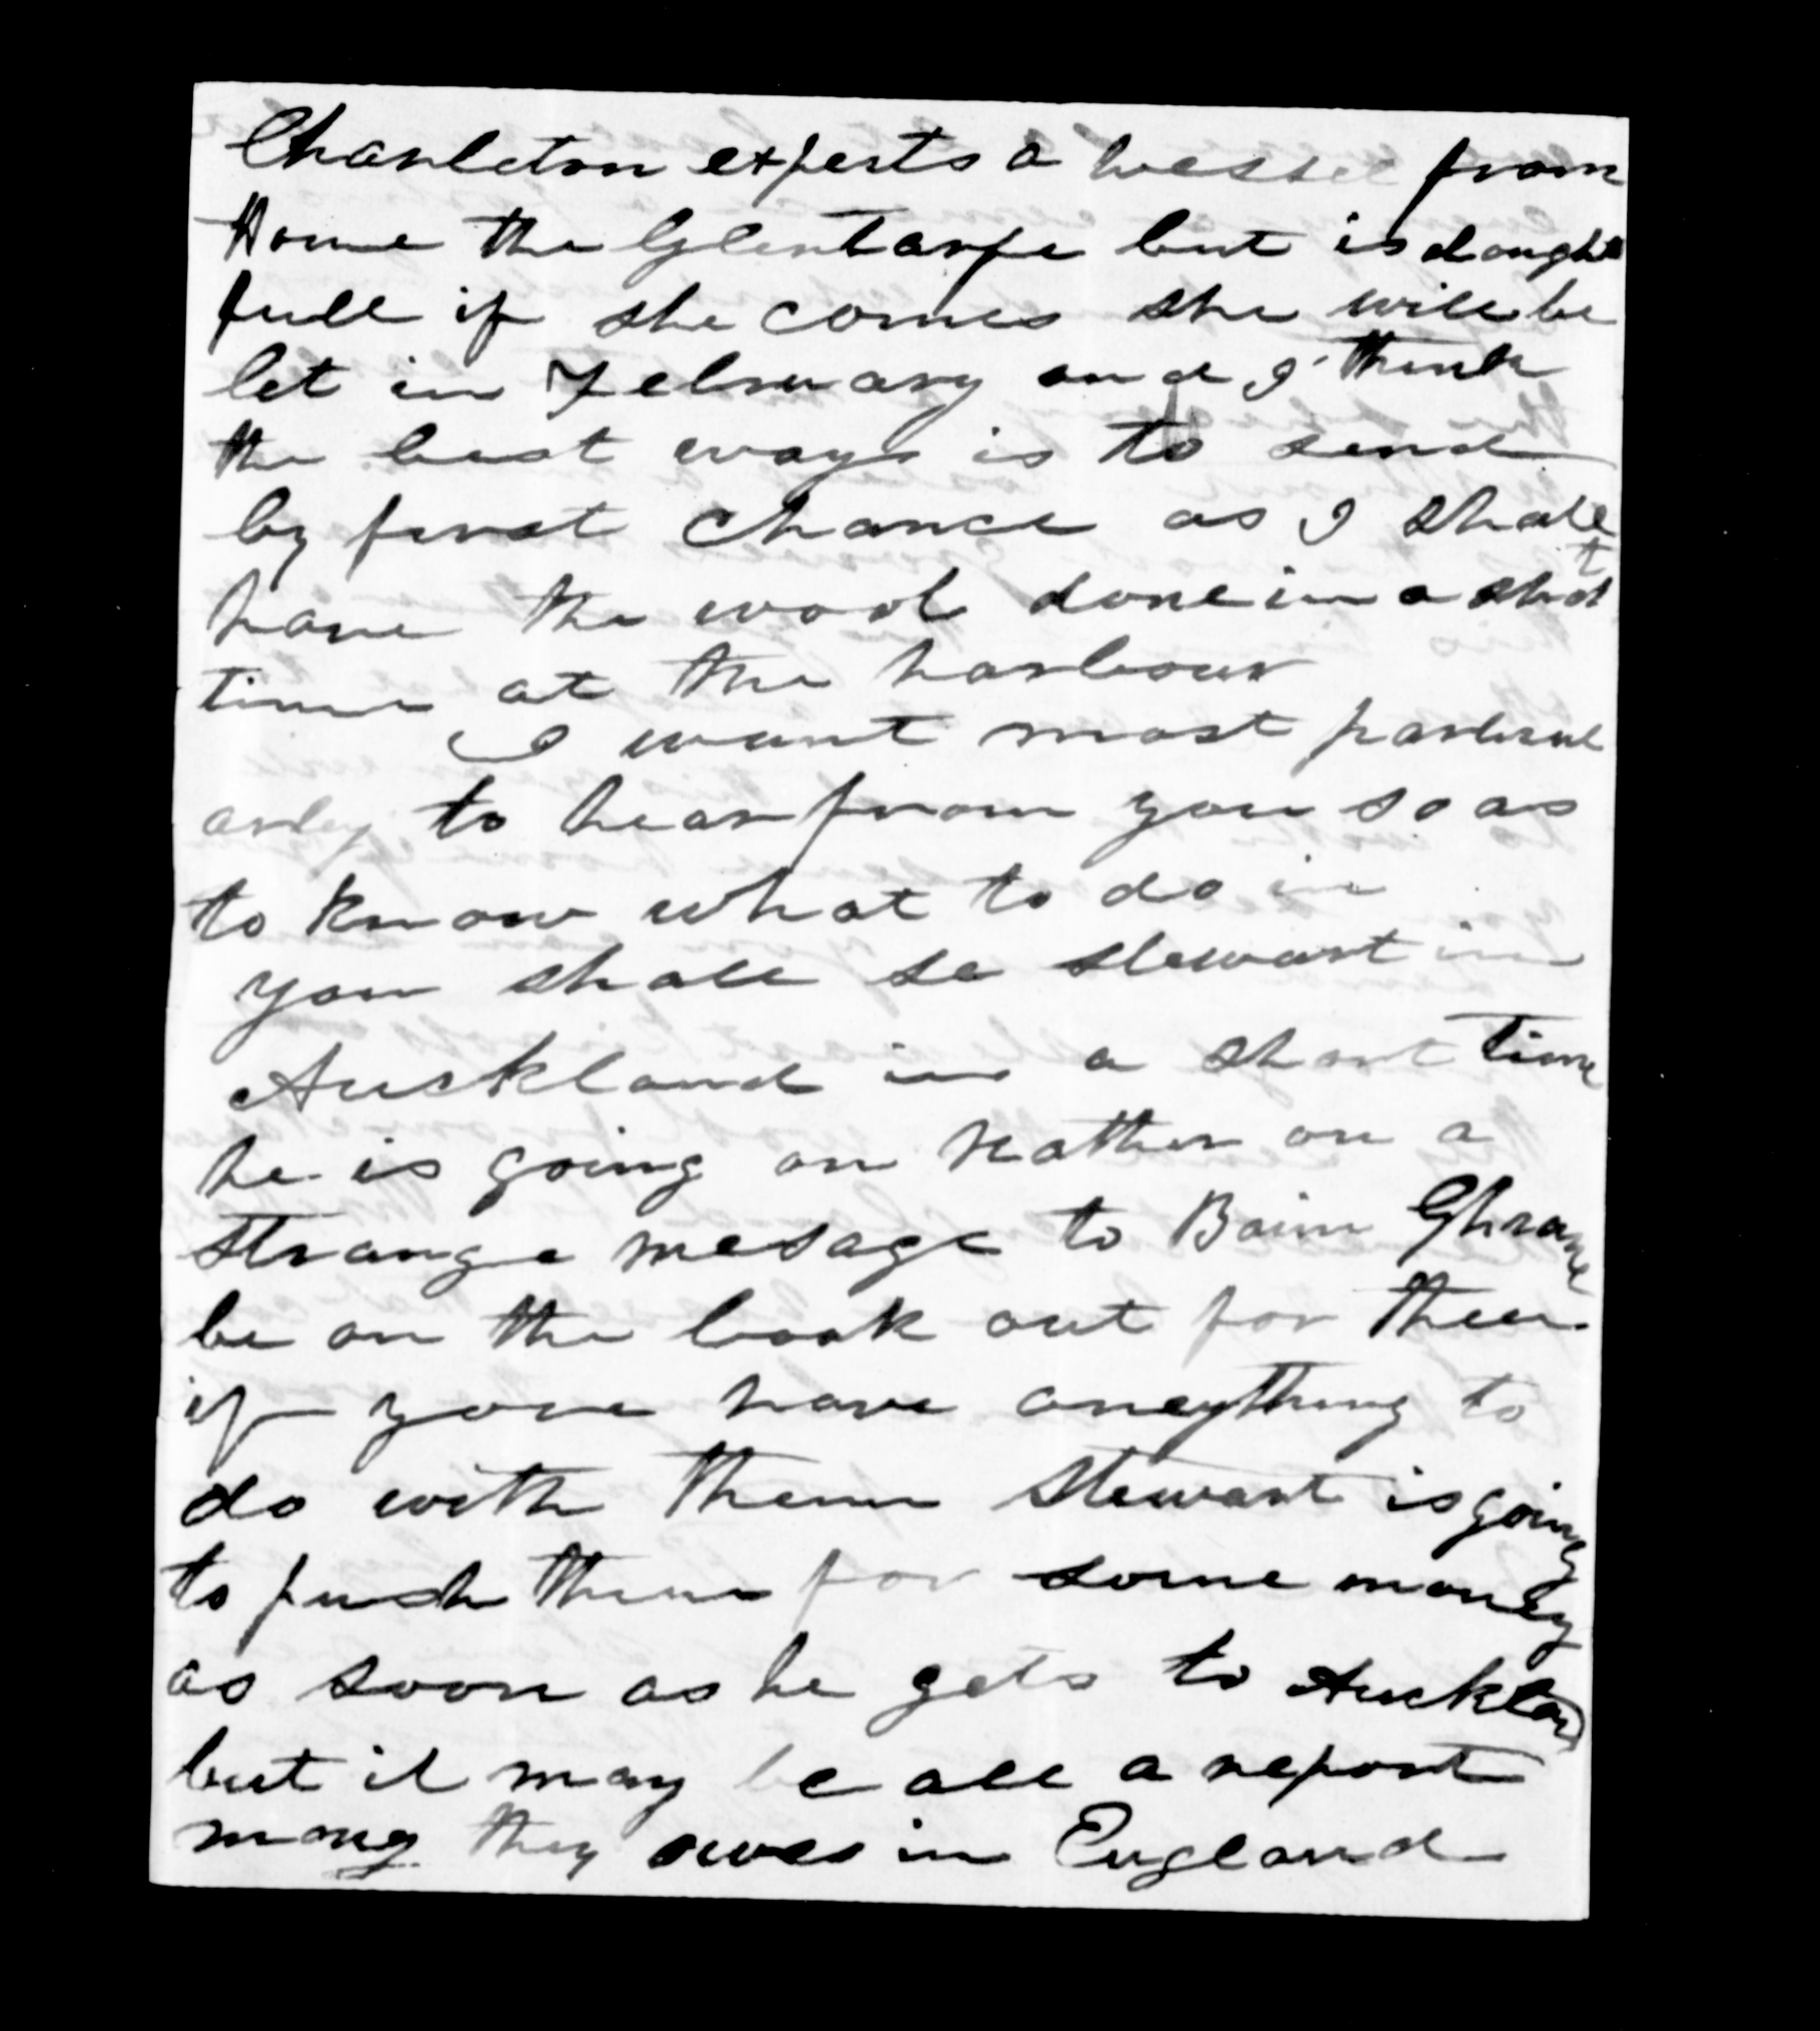 Charleton expects a vessel from
Home the Glentarpe but is dought
full if she comes she will be
let in February and I think
the best ways is to send
by first chance as I shall
have the wool done in a short
time at the harbour
I want most particul
arley to hear from you so as
to know what to do in
you shall se stewart in
Auckland in a short time
he is going on rather on a
strange mesage to Bain Ghrame
be on the look out for them
if youe have aneything to
do with them Stewart is going
to push them for some money
as soon as he gets to Aucklan
but it may be all a report
mony they owes in England